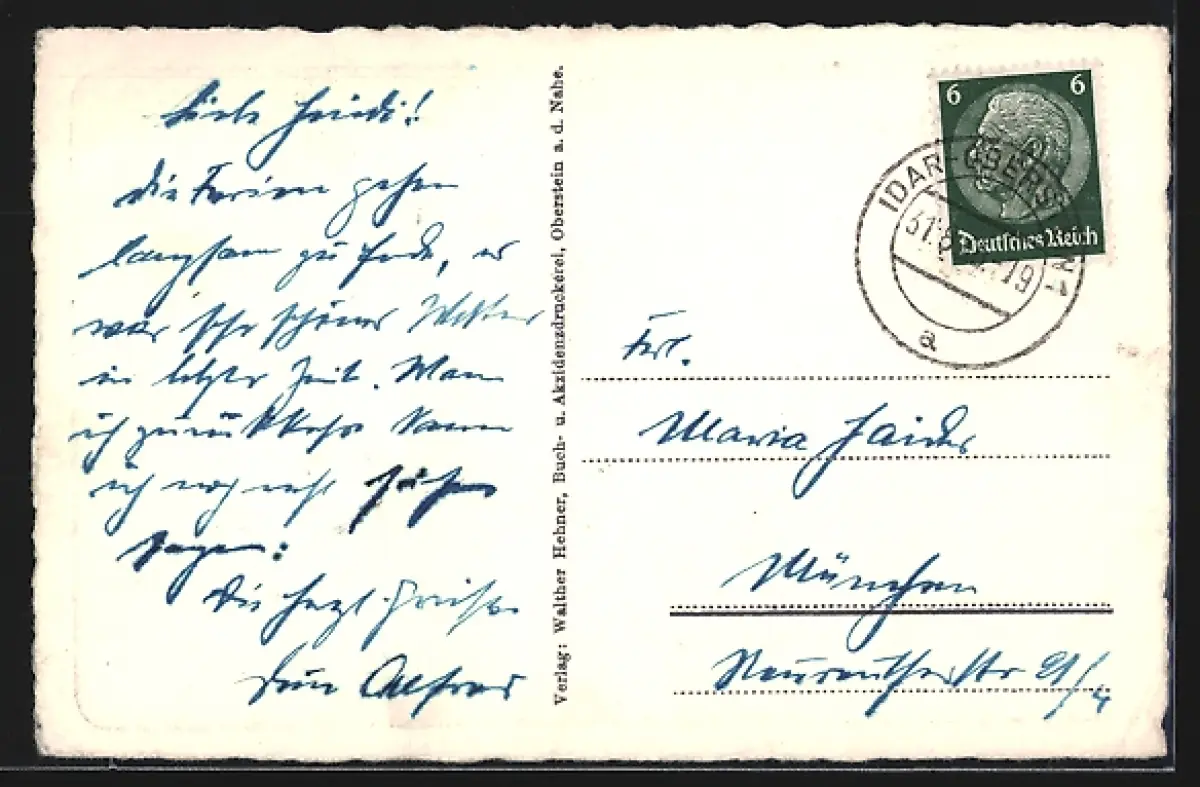 Liebe Heidi!
die Ferien gehen
langsam zu Ende, es
war sehr schönes Wetter
in letzter Zeit. Wann
ich zurückkehre kann
ich noch nicht
sagen:
Die herzl. Grüsse
Dein Alfred
Verlag: Walther Hehner, Buch- u. Akzidenzdruckerei, Oberstein a. d. Nahe.
6 6
Deutsches Reich
IDAR-OBERSTEIN 1
a
Frl.
Maria
München
Neureutherstr 21/4